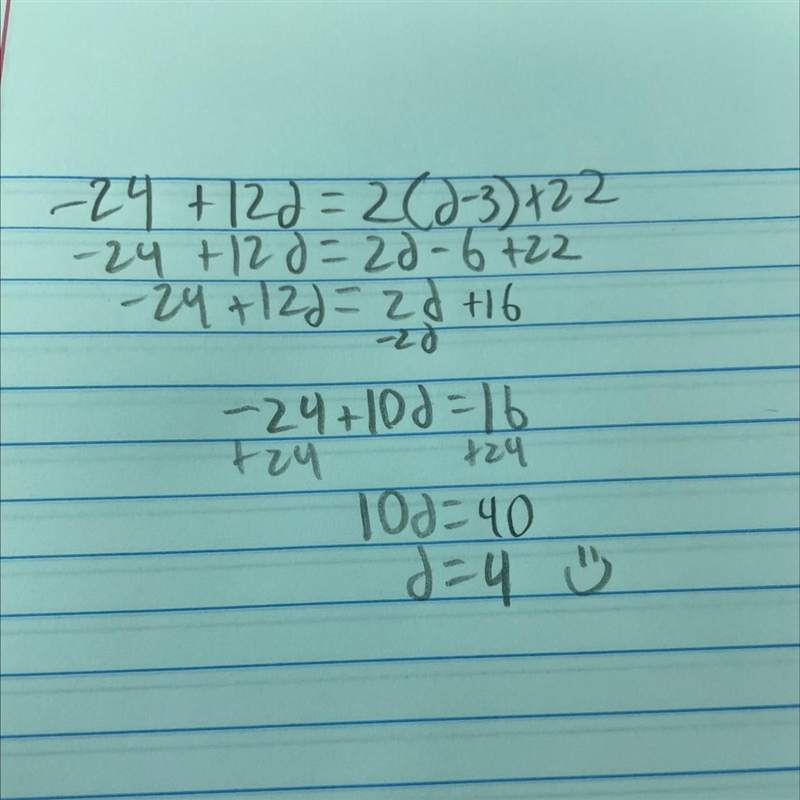 -24 +12d = 2(d-3)+22
-24 +12d = 2d - 6 +22
-24 +12d = 2d +16
-2d
-24+10d =16
+24 +24
10d=40
d=4 :)